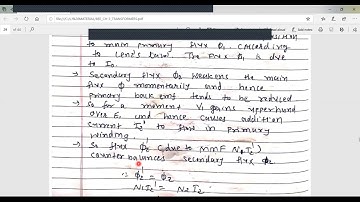 to main primary flux Φ1 (according
to Lenz's Law). The flux Φ1 is due
to I0.
→ Secondary flux Φ2 weakens the main
flux Φ momentarily and hence
primary back emf tends to be reduced
→ So for a moment V1 gains upperhand
over E1 and hence causes addition
current I2' to flow in primary
winding.
→ So flux Φ2' (due to MMF N1I2')
counter balances secondary flux Φ2
∴ Φ2' = Φ2
N1I2' = N2I2